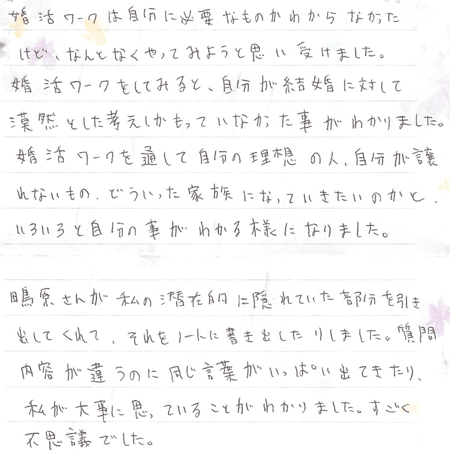 婚活ワークは自分に必要なものかわからなかった
けど、なんとなくやってみようと思い受けました。
婚活ワークをしてみると、自分が結婚に対して
漠然とした考えしかもっていなかった事がわかりました。
婚活ワークを通して自分の理想の人、自分が譲
れないもの、どういった家族になっていきたいのかと、
いろいろと自分の事がわかる様になりました。
鴫原さんが私の潜在的に隠れていた部分を引き
出してくれて、それをノートに書き出したりしました。質問
内容が違うのに同じ言葉がいっぱい出てきたり、
私が大事に思っていることがわかりました。すごく
不思議でした。